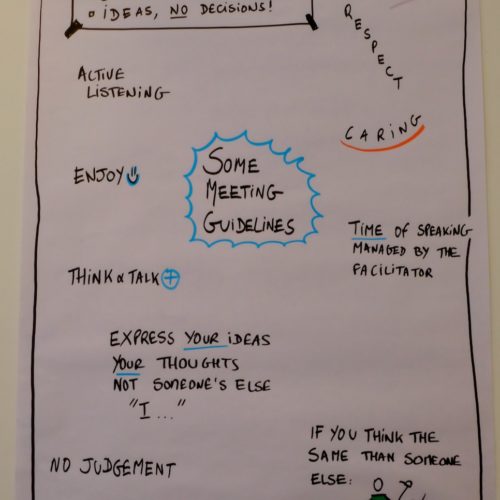 IDEAS, NO DECISIONS!
RESPECT
ACTIVE
LISTENING
CARING
ENJOY
SOME
MEETING
GUIDELINES
TIME OF SPEAKING
MANAGED BY THE
FACILITATOR
THINK & TALK +
EXPRESS YOUR IDEAS
YOUR THOUGHTS
NOT SOMEONE'S ELSE
"I..."
NO JUDGEMENT
IF YOU THINK THE
SAME THAN SOMEONE
ELSE: